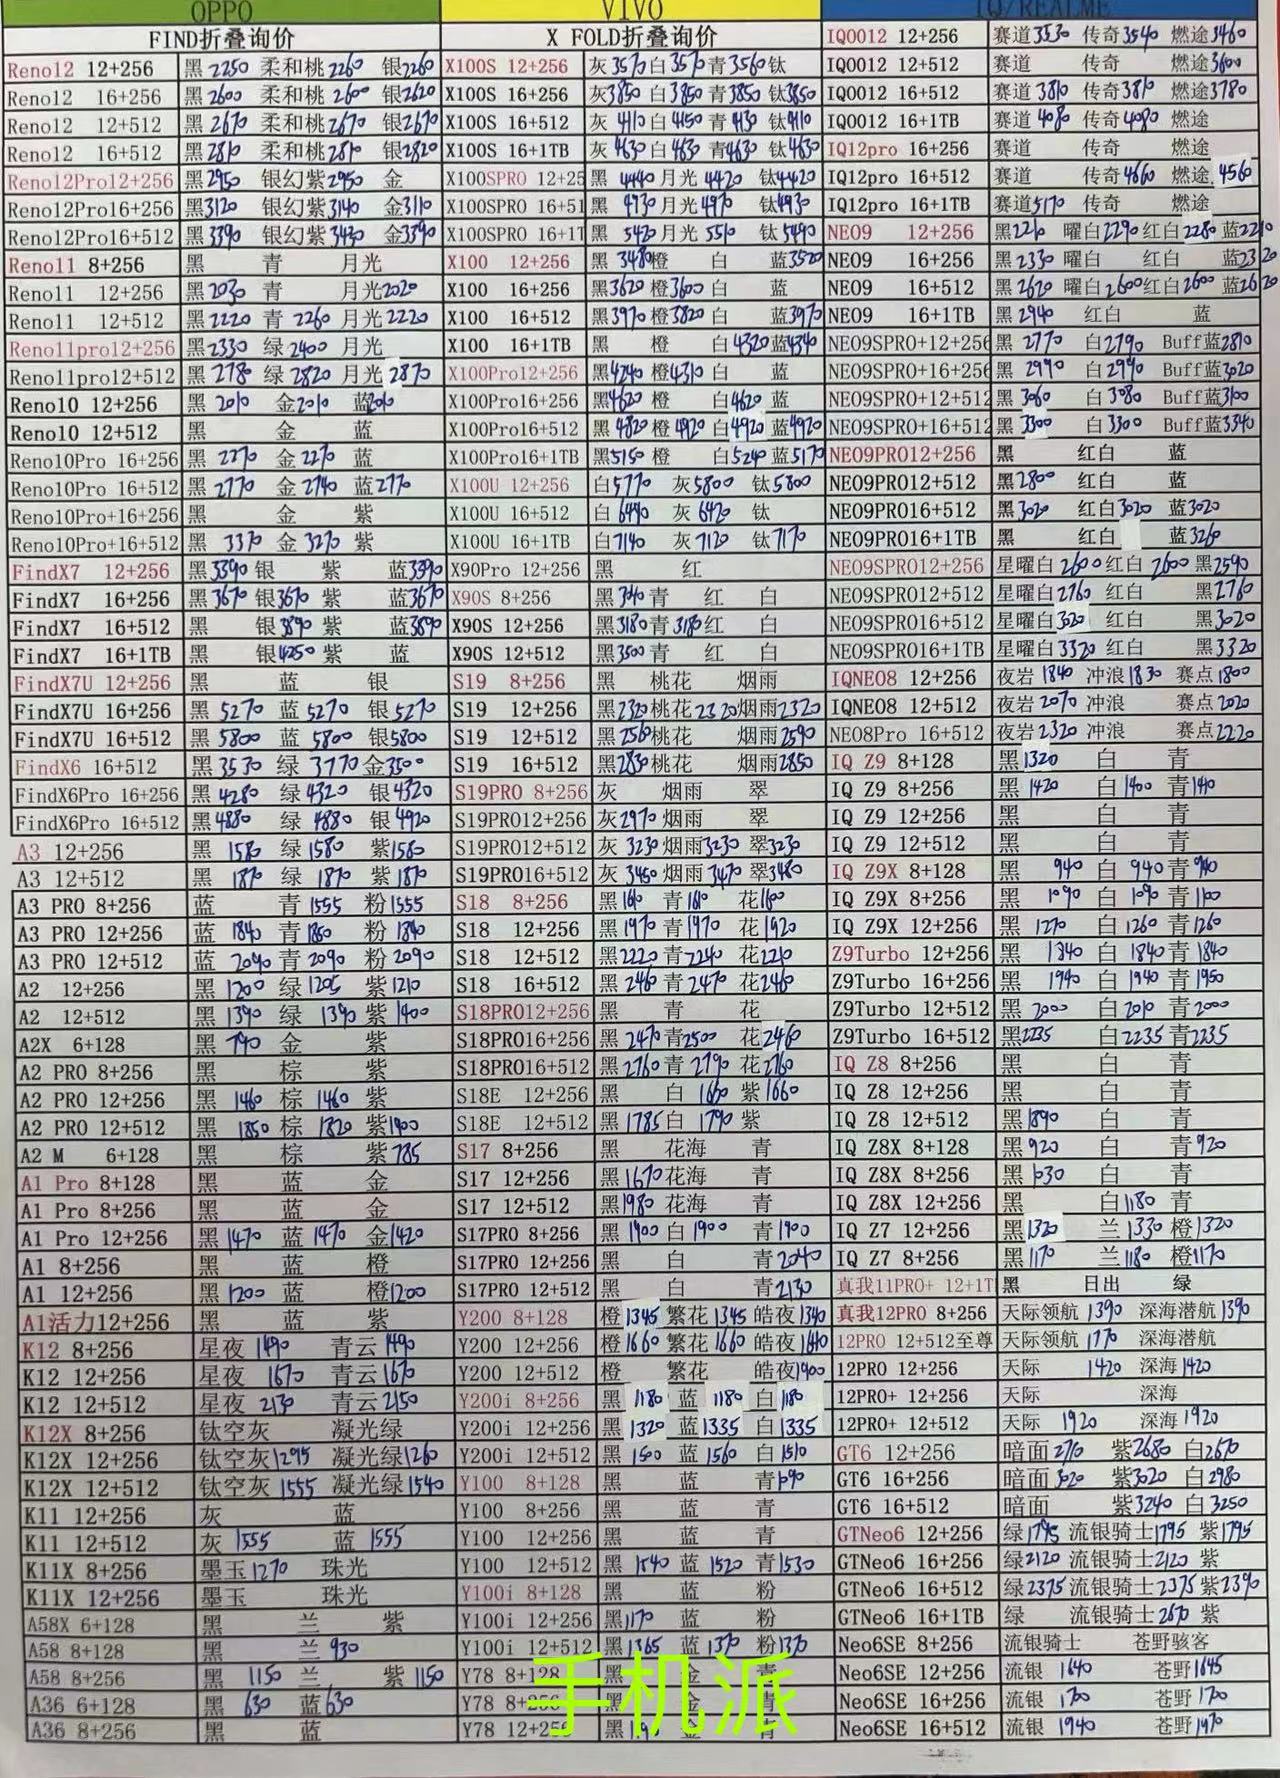 OPPO VIVO IQ/REALME
FIND折叠询价 X FOLD折叠询价 IQOO12 12+256 赛道3530 传奇3540 燃途3460
Reno12 12+256 黑2250 柔和桃2260 银2260 X100S 12+256 灰3570白3570青3560钛 IQOO12 12+512 赛道 传奇 燃途3600
Reno12 16+256 黑2600 柔和桃2600 银2620 X100S 16+256 灰3850 白3850 青3850 钛3850 IQOO12 16+512 赛道3810 传奇3810 燃途3780
Reno12 12+512 黑2670 柔和桃2670 银2670 X100S 16+512 灰4110白4150青4130 钛4110 IQOO12 16+1TB 赛道4080 传奇4080 燃途
Reno12 16+512 黑2810 柔和桃2810 银2820 X100S 16+1TB 灰4630白4630 青4630 钛4630 IQ12pro 16+256 赛道 传奇 燃途
Reno12Pro12+256 黑2950 银幻紫2950 金 X100SPRO 12+25 黑4440月光4420 钛4420 IQ12pro 16+512 赛道 传奇4660 燃途4560
Reno12Pro16+256 黑3120 银幻紫3140 金3110 X100SPRO 16+51 黑4930月光4970 钛4930 IQ12pro 16+1TB 赛道5170 传奇 燃途
Reno12Pro16+512 黑3390 银幻紫3430 金3390 X100SPRO 16+1T 黑5420月光5510 钛5490 NEO9 12+256 黑2210 曜白2290红白2280 蓝2210
Reno11 8+256 黑 青 月光 X100 12+256 黑3480橙 白 蓝3520 NEO9 16+256 黑2330 曜白 红白 蓝2320
Reno11 12+256 黑2030 青 月光2020 X100 16+256 黑3620 橙3600 白 蓝 NEO9 16+512 黑2620 曜白2600红白2600 蓝2620
Reno11 12+512 黑2220 青2260 月光2220 X100 16+512 黑3970橙3820 白 蓝3970 NEO9 16+1TB 黑2940 红白 蓝
Reno11pro12+256 黑2330 绿2400 月光 X100 16+1TB 黑 橙 白4320蓝4340 NEO9SPRO+12+256 黑2770 白2790 Buff蓝2810
Reno11pro12+512 黑2780 绿2820 月光2870 X100Pro12+256 黑4240橙4310白 蓝 NEO9SPRO+16+256 黑2990 白2990 Buff蓝3020
Reno10 12+256 黑2010 金2010 蓝2010 X100Pro16+256 黑4620 橙 白4620 蓝 NEO9SPRO+12+512 黑3060 白3080 Buff蓝3100
Reno10 12+512 黑 金 蓝 X100Pro16+512 黑4820 橙4920 白4920 蓝4920 NEO9SPRO+16+512 黑3300 白3300 Buff蓝3340
Reno10Pro 16+256 黑2270 金2270 蓝 X100Pro16+1TB 黑5150 橙 白5240 蓝5170 NEO9PRO12+256 黑 红白 蓝
Reno10Pro 16+512 黑2770 金2740 蓝2770 X100U 12+256 白5770 灰5800 钛5800 NEO9PRO12+512 黑2800 红白 蓝
Reno10Pro+16+256 黑 金 紫 X100U 16+512 白6440 灰6420 钛 NEO9PRO16+512 黑3020 红白3020 蓝3020
Reno10Pro+16+512 黑3370 金3270 紫 X100U 16+1TB 白7140 灰7120 钛7170 NEO9PRO16+1TB 黑 红白 蓝3260
FindX7 12+256 黑3390银 紫 蓝3390 X90Pro 12+256 黑 红 NEO9SPRO12+256 星曜白2600红白2600 黑2590
FindX7 16+256 黑3670 银3670 紫 蓝3670 X90S 8+256 黑 青 红 白 NEO9SPRO12+512 星曜白2760 红白 黑2760
FindX7 16+512 黑 银3890 紫 蓝3890 X90S 12+256 黑3180青3180红 白 NEO9SPRO16+512 星曜白3020 红白 黑3020
FindX7 16+1TB 黑 银4250 紫 蓝 X90S 12+512 黑3500青 红 白 NEO9SPRO16+1TB 星曜白3320 红白 黑3320
FindX7U 12+256 黑 蓝 银 S19 8+256 黑 桃花 烟雨 IQNEO8 12+256 夜岩1840 冲浪1830 赛点1800
FindX7U 16+256 黑5270 蓝5270 银5270 S19 12+256 黑2320桃花2320烟雨2320 IQNEO8 12+512 夜岩2070 冲浪 赛点2020
FindX7U 16+512 黑5800 蓝5800 银5800 S19 12+512 黑2560桃花 烟雨2590 NEO8Pro 16+512 夜岩2320 冲浪 赛点2220
FindX6 16+512 黑3530 绿3770金3500 S19 16+512 黑2830桃花 烟雨2850 IQ Z9 8+128 黑1320 白 青
FindX6Pro 16+256 黑4280 绿4320 银4320 S19PRO 8+256 灰 烟雨 翠 IQ Z9 8+256 黑1420 白1400 青
FindX6Pro 16+512 黑4880 绿4880 银4920 S19PRO12+256 灰2970烟雨 翠 IQ Z9 12+256 黑 白 青
A3 12+256 黑1580 绿1580 紫1580 S19PRO12+512 灰3230烟雨3230 翠3230 IQ Z9 12+512 黑 白 青
A3 12+512 黑1870 绿1870 紫1870 S19PRO16+512 灰3450烟雨3470 翠3480 IQ Z9X 8+128 黑940 白940青940
A3 PRO 8+256 蓝 青1555 粉1555 S18 8+256 黑1610 青1610 花1600 IQ Z9X 8+256 黑1090 白1090 青1100
A3 PRO 12+256 蓝1840 青1860 粉1840 S18 12+256 黑1970青1970 花1920 IQ Z9X 12+256 黑1270 白1260青1260
A3 PRO 12+512 蓝2090青2090 粉2090 S18 12+512 黑2220青2240 花2210 Z9Turbo 12+256 黑1840 白1840青1840
A2 12+256 黑1200 绿1205 紫1210 S18 16+512 黑2460青2470 花2460 Z9Turbo 16+256 黑1940 白1940 青1950
A2 12+512 黑1390 绿1390 紫1400 S18PRO12+256 黑 青 花 Z9Turbo 12+512 黑2000 白2010 青2000
A2X 6+128 黑790 金 紫 S18PRO16+256 黑2470青2500 花2460 Z9Turbo 16+512 黑2235 白2235青2235
A2 PRO 8+256 黑 棕 紫 S18PRO16+512 黑2760青2790 花2760 IQ Z8 8+256 黑 白 青
A2 PRO 12+256 黑1460 棕1460 紫 S18E 12+256 黑 白1660 紫1660 IQ Z8 12+256 黑 白 青
A2 PRO 12+512 黑1850 棕1820 紫1900 S18E 12+512 黑1785白1790 紫 IQ Z8 12+512 黑1890 白 青
A2 M 6+128 黑 棕 紫785 S17 8+256 黑 花海 青 IQ Z8X 8+128 黑920 白 青920
A1 Pro 8+128 黑 蓝 金 S17 12+256 黑1670花海 青 IQ Z8X 8+256 黑1030 白 青
A1 Pro 8+256 黑 蓝 金 S17 12+512 黑1980花海 青 IQ Z8X 12+256 黑 白1180 青
A1 Pro 12+256 黑1470 蓝1470 金1420 S17PRO 8+256 黑1900白1900 青1900 IQ Z7 12+256 黑1320 兰1330 橙1320
A1 8+256 黑 蓝 橙 S17PRO 12+256 黑 白 青2040 IQ Z7 8+256 黑1170 兰1180 橙1170
A1 12+256 黑1200 蓝 橙1200 S17PRO 12+512 黑 白 青2130 真我11PRO+ 12+1T 黑 日出 绿
A1活力12+256 黑 蓝 紫 Y200 8+128 橙1345 繁花1345 皓夜1340 真我12PRO 8+256 天际领航1390 深海潜航1390
K12 8+256 星夜1490 青云1490 Y200 12+256 橙1660 繁花1660 皓夜1640 12PRO 12+512至尊 天际领航1770 深海潜航
K12 12+256 星夜1670 青云1670 Y200 12+512 橙 繁花 皓夜1900 12PRO 12+256 天际1420 深海1420
K12 12+512 星夜2130 青云2150 Y200i 8+256 黑1180 蓝1180 白1180 12PRO+ 12+256 天际 深海
K12X 8+256 钛空灰 凝光绿 Y200i 12+256 黑1320 蓝1335 白1335 12PRO+ 12+512 天际1920 深海1920
K12X 12+256 钛空灰1295 凝光绿1260 Y200i 12+512 黑1500 蓝1560 白1510 GT6 12+256 暗面2710 紫2680 白2670
K12X 12+512 钛空灰1555 凝光绿1540 Y100 8+128 黑 蓝 青1090 GT6 16+256 暗面3020 紫3020 白2980
K11 12+256 灰 蓝 Y100 8+256 黑 蓝 青 GT6 16+512 暗面 紫3240 白3250
K11 12+512 灰1555 蓝1555 Y100 12+256 黑 蓝 青 GTNeo6 12+256 绿1795 流银骑士1795 紫1795
K11X 8+256 墨玉1270 珠光 Y100 12+512 黑1540 蓝1520 青1530 GTNeo6 16+256 绿2120 流银骑士2120 紫
K11X 12+256 墨玉 珠光 Y100i 8+128 黑 蓝 粉 GTNeo6 16+512 绿2375流银骑士2375 紫2390
A58X 6+128 黑 兰 紫 Y100i 12+256 黑1170 蓝 粉 GTNeo6 16+1TB 绿 流银骑士2670 紫
A58 8+128 黑 兰930 Y100i 12+512 黑1365 蓝1370 粉1370 Neo6SE 8+256 流银骑士 苍野骇客
A58 8+256 黑1150 兰 紫1150 Y78 8+128 金 青 Neo6SE 12+256 流银1640 苍野1645
手机派
A36 6+128 黑630 蓝630 Y78 8+256 金 青 Neo6SE 16+256 流银1700 苍野1700
A36 8+256 黑 蓝 Y78 12+256 黑 金 青 Neo6SE 16+512 流银1940 苍野1970